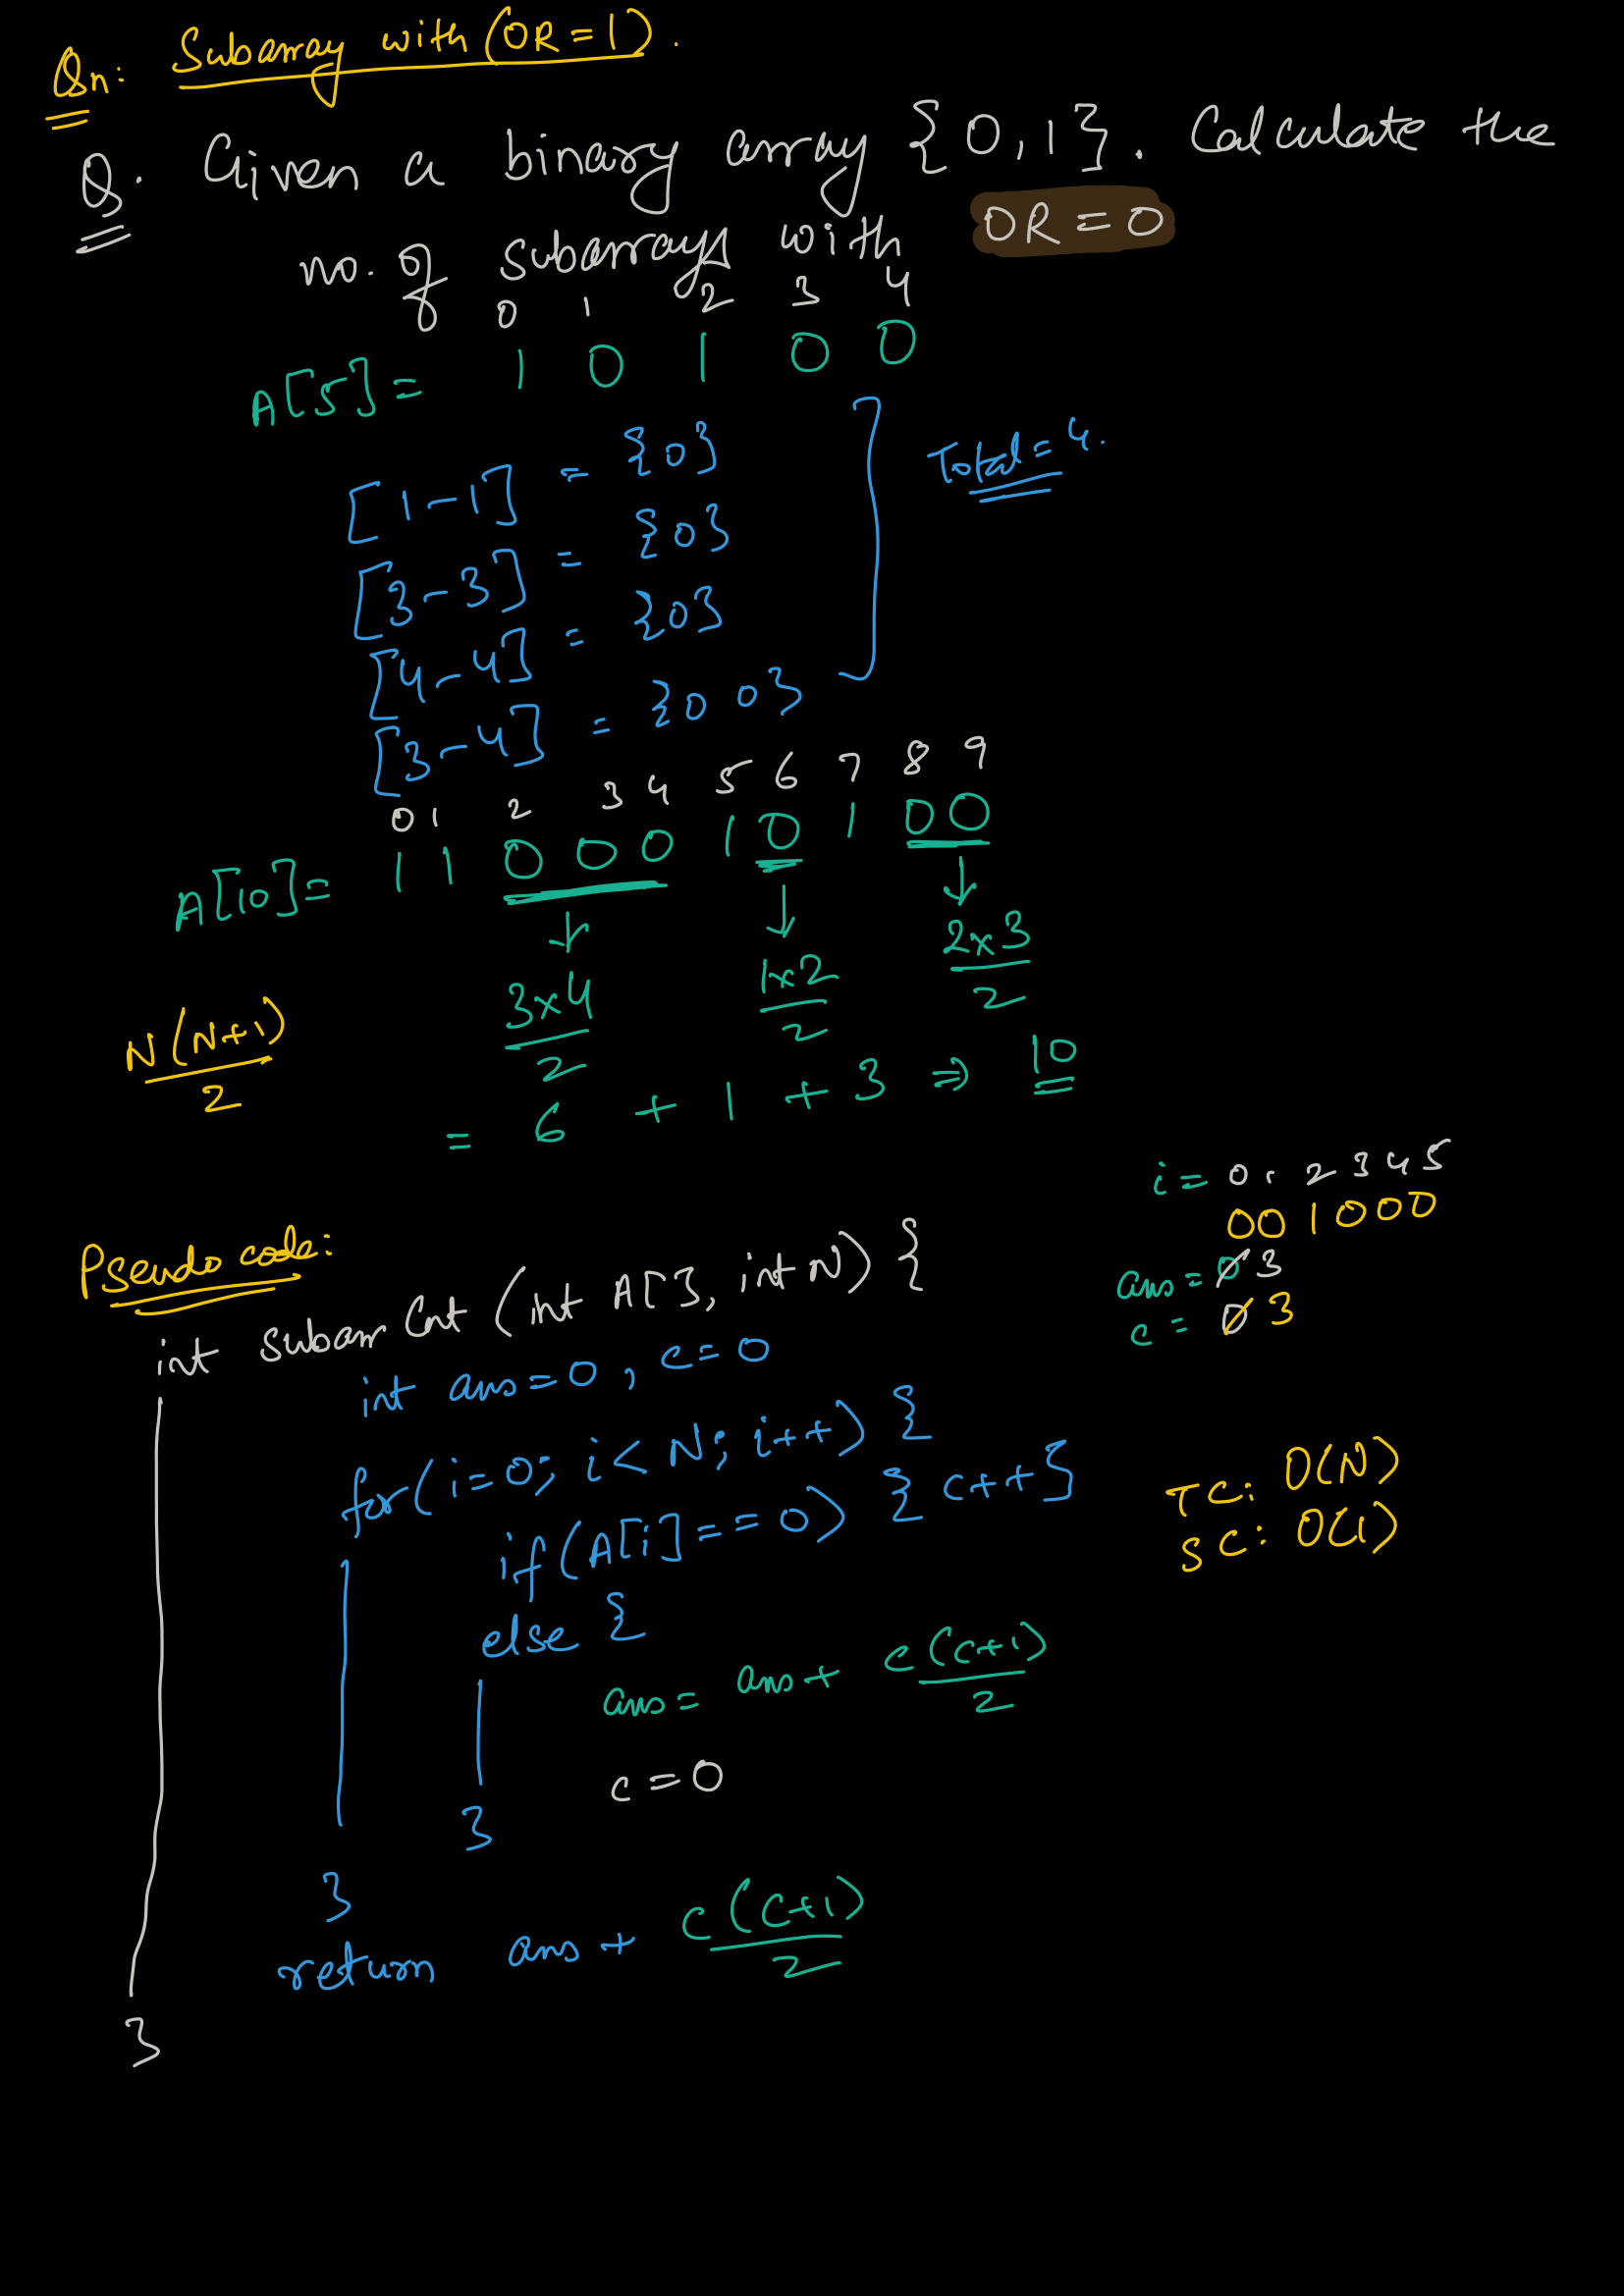 Qn: Subarray with (OR = 1).
Q. Given a binary array {0,1}. Calculate the
no. of subarrays with OR = 0
0 1 2 3 4
A[5] = 1 0 1 0 0
[1-1] = {0}
[3-3] = {0}
[4-4] = {0}
[3-4] = {0 0}
Total = 4.
0 1 2 3 4 5 6 7 8 9
A[10] = 1 1 0 0 0 1 0 1 0 0
3x4/2 1x2/2 2x3/2
N(N+1)/2
= 6 + 1 + 3 ⇒ 10
i = 0 1 2 3 4 5
0 0 1 0 0 0
ans = 0 0 3
c = 0 3
Pseudo code:
int subarr Cnt (int A[], int N) {
int ans = 0, c = 0
for(i=0; i < N; i++) {
if(A[i] == 0) { c++ }
else {
ans = ans + c(c+1)/2
c = 0
}
}
return ans + c(c+1)/2
}
TC: O(N)
SC: O(1)